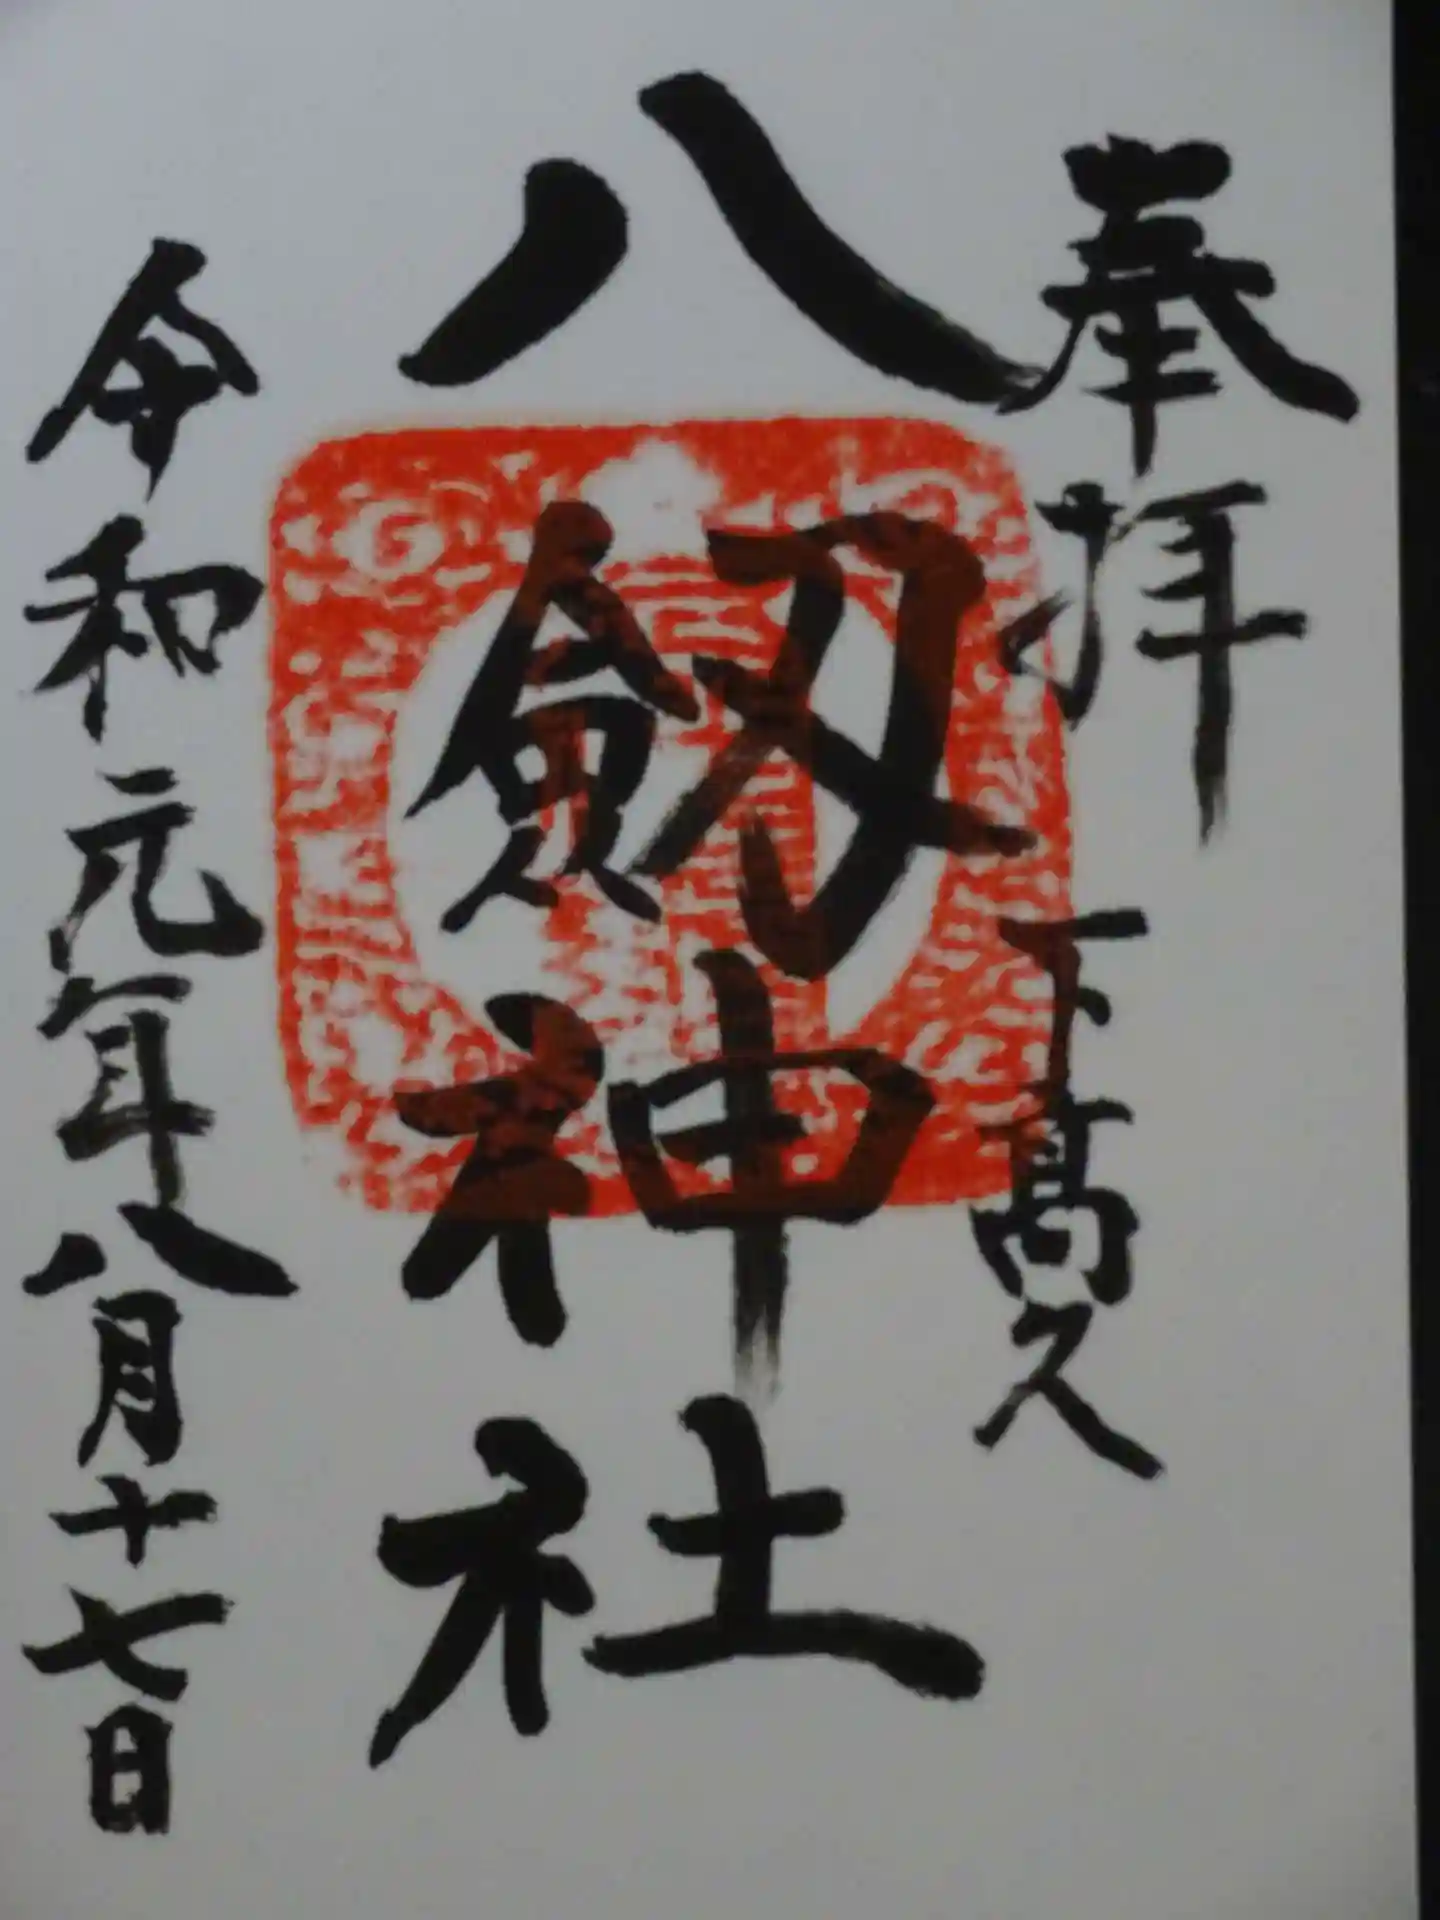 奉拝
下髙久
八劔神社
令和元年八月十七日